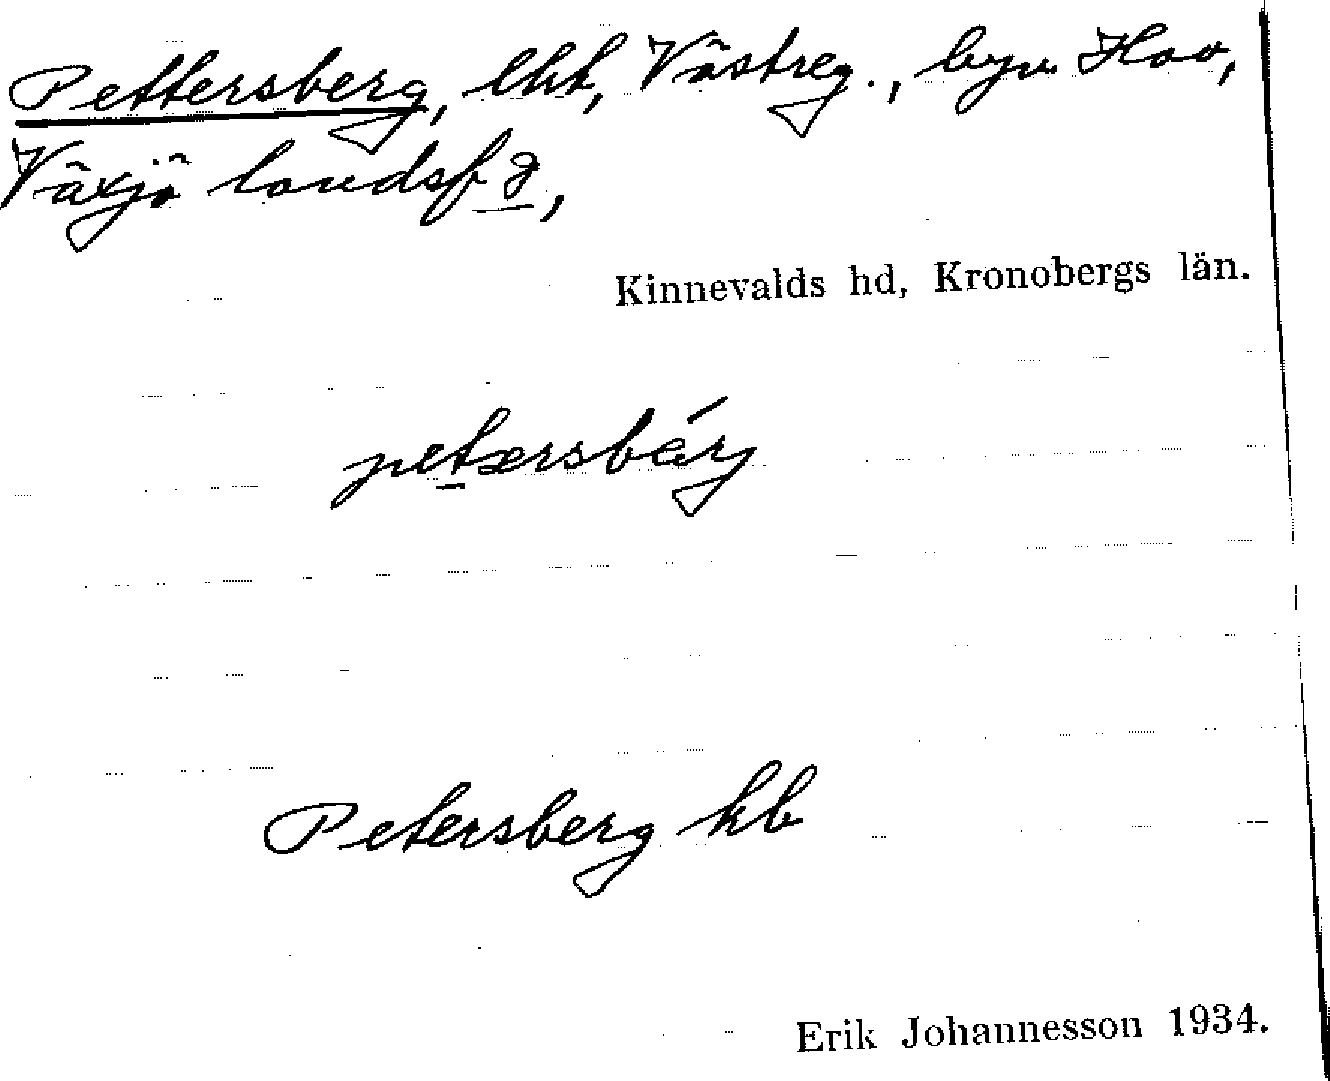 Pettersberg, lht, Västreg., byn Hov,
Växjö landsf
Kinnevalds hd, Kronobergs län.
petersbärj
Petersberg kb
Erik Johannesson 1934.